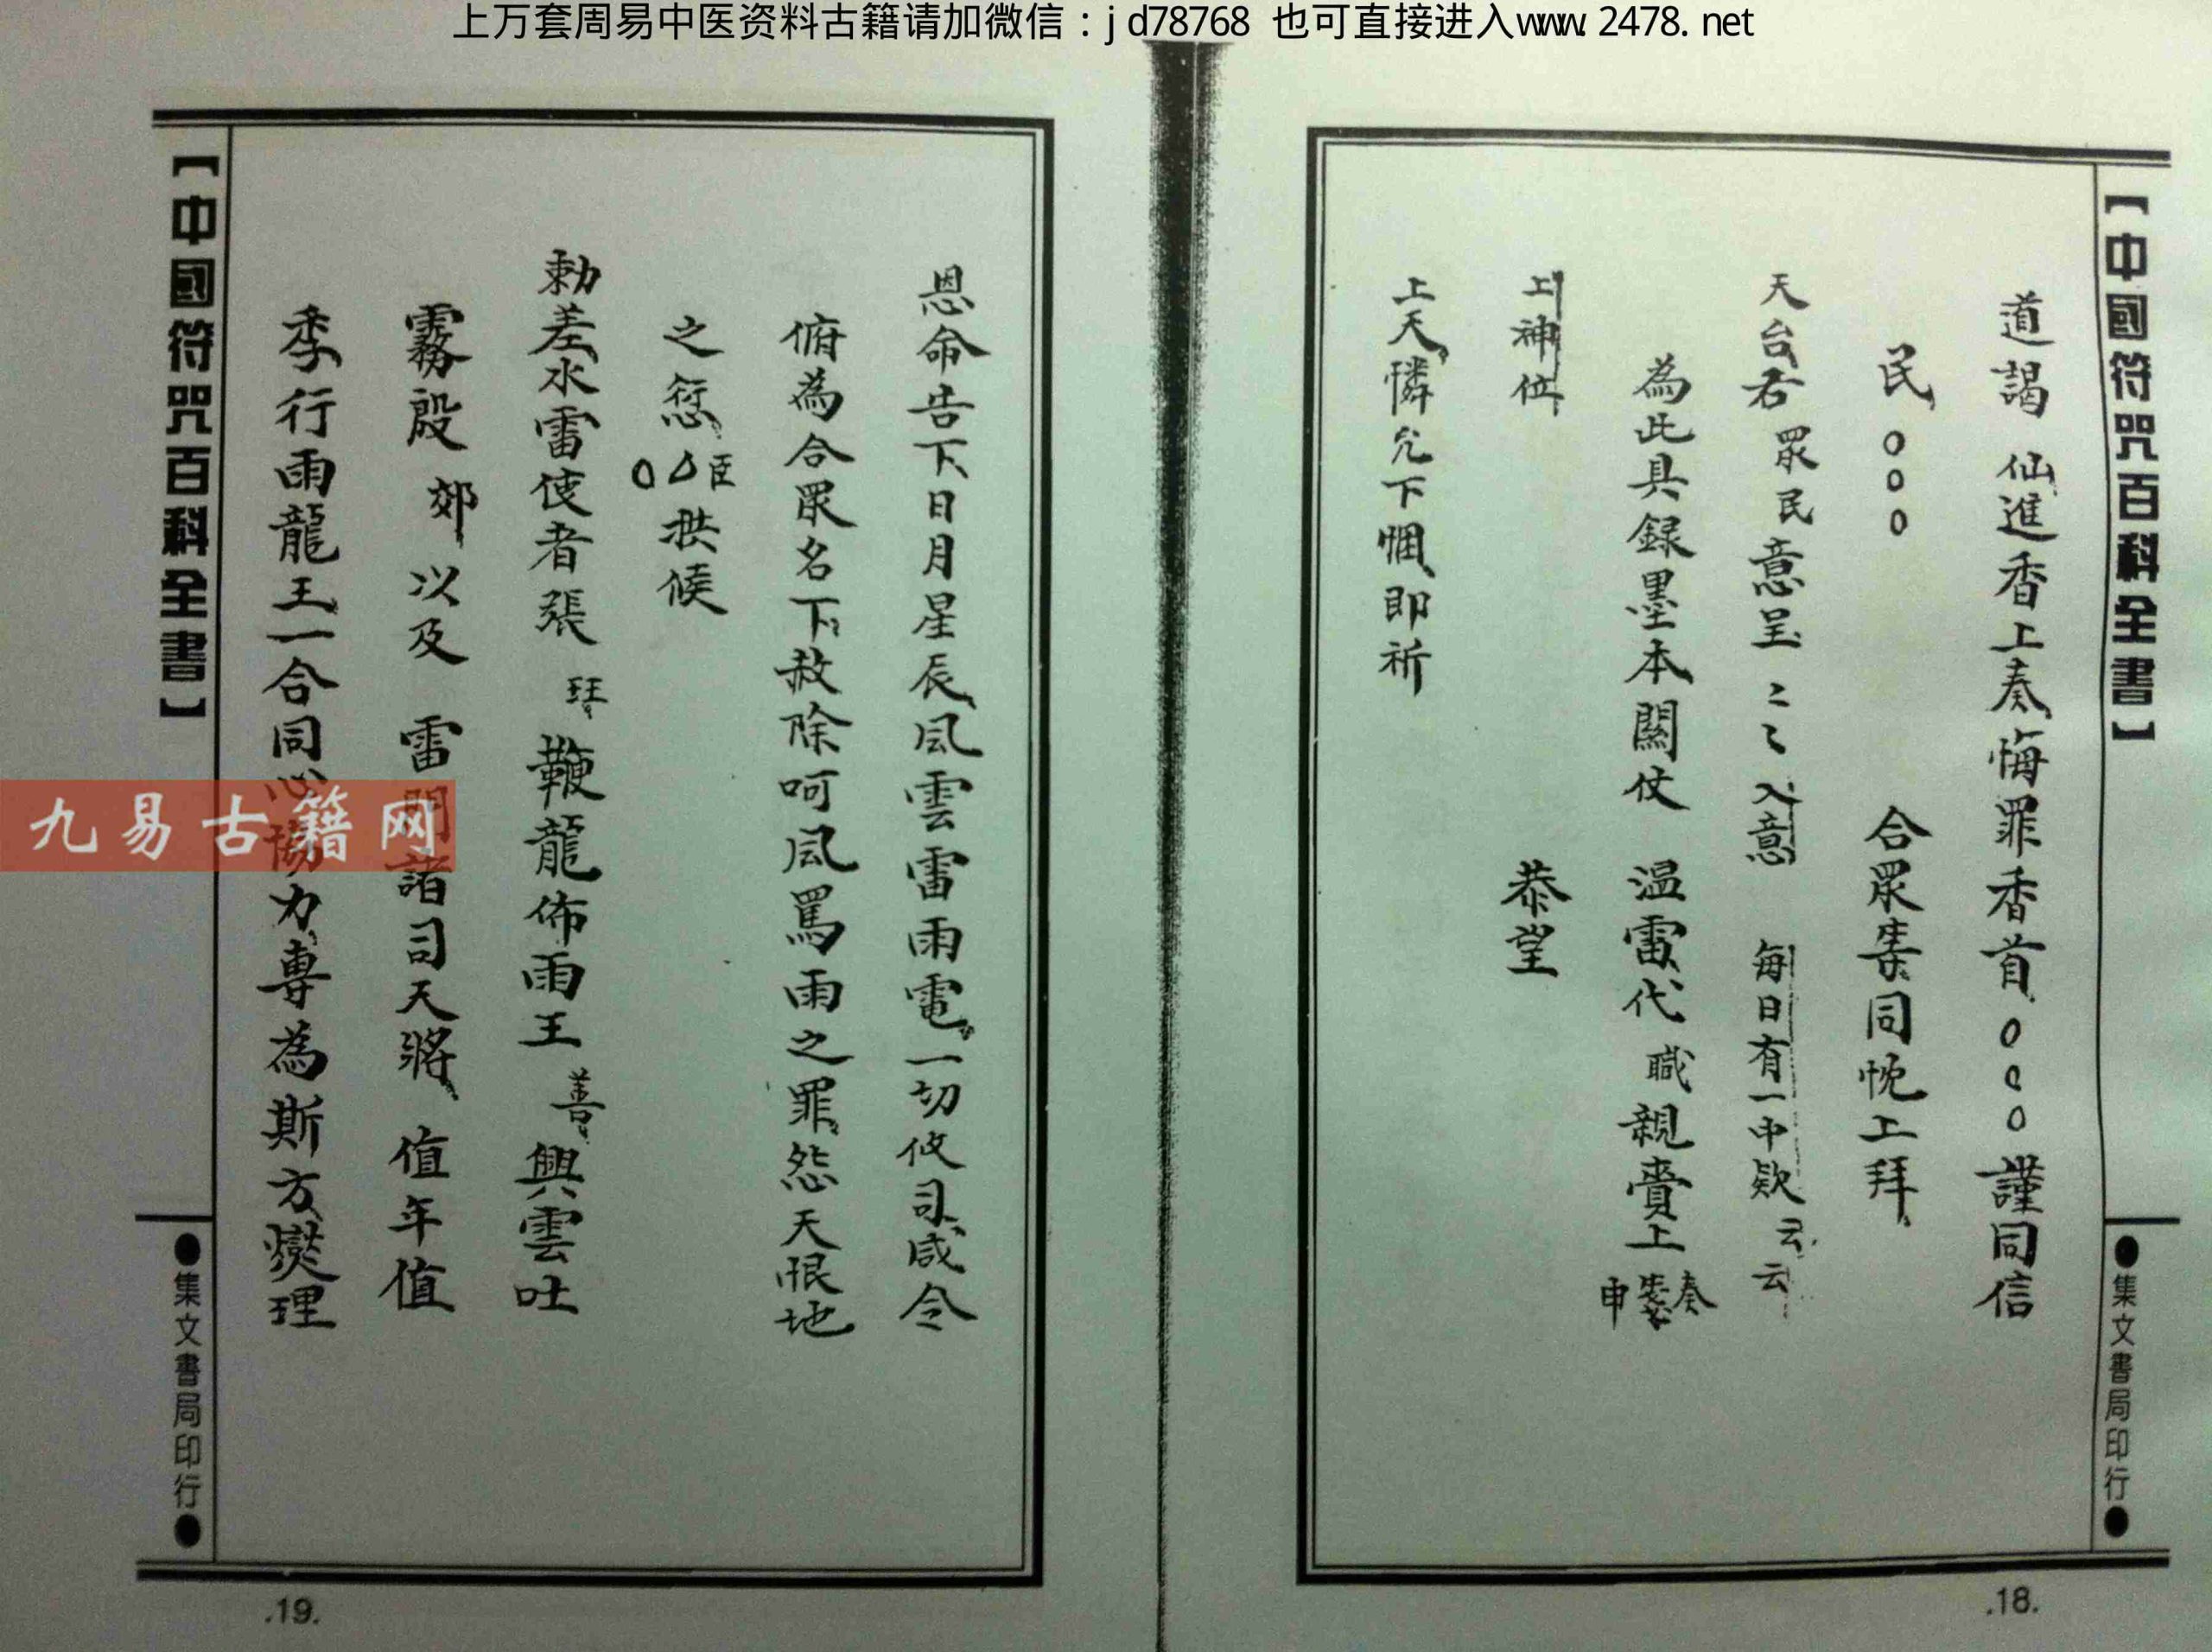 上万套周易中医资料古籍请加微信：jd78768 也可直接进入www.2478.net
【中國符咒百科全書】
●集文書局印行●
道謁 仙進香上奏悔罪香首○○○謹同信
民○○○ 合眾等同忱上拜
天台右眾民意呈 入意 每日有一中欵云云
為此具録墨本關仗 温雷代職親賫上奏申
上神位 恭望
上天憐允下悃即祈
.18.
恩命告下日月星辰風雲雷雨電一切攸司咸令
俯為合眾名下赦除呵風罵雨之罪怨天恨地
之愆臣○拱候
勅差水雷使者張 鞭龍佈雨王善興雲吐
霧殷郊以及 雷門諸司天將 值年值
季行雨龍王一合同心協力專為斯方爕理
【中國符咒百科全書】
●集文書局印行●
.19.
九易古籍网